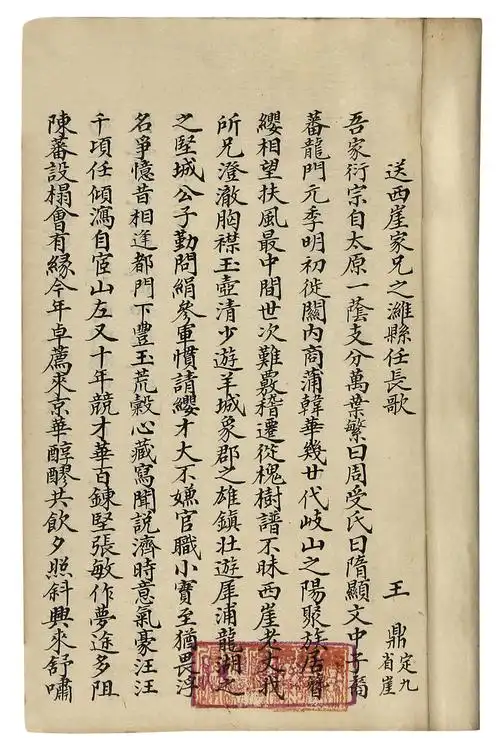 送西崖家兄之濰縣任長歌
王鼎定九省崖
吾家衍宗自太原一蔭支分萬葉繁曰周受氏曰隋顯文中子裔
蕃龍門元季明初徙關內商蒲韓華幾廿代岐山之陽聚族居簪
纓相望扶風最中間世次難覈稽遷從槐樹譜不昧西崖老丈我
所兄澄澈胸襟玉壺清少遊羊城象郡之雄鎮壯遊犀浦龍湖之
之堅城公子勤問絹參軍慣請纓才大不嫌官職小實至猶畏浮
名爭憶昔相逢都門下豐玉荒穀心藏寫聞說濟時意氣豪汪汪
千頃任傾瀉自宦山左又十年競才華百鍊堅張敏作夢途多阻
陳蕃設榻會有緣今年卓薦來京華醇醪共飲夕照斜興來舒嘯